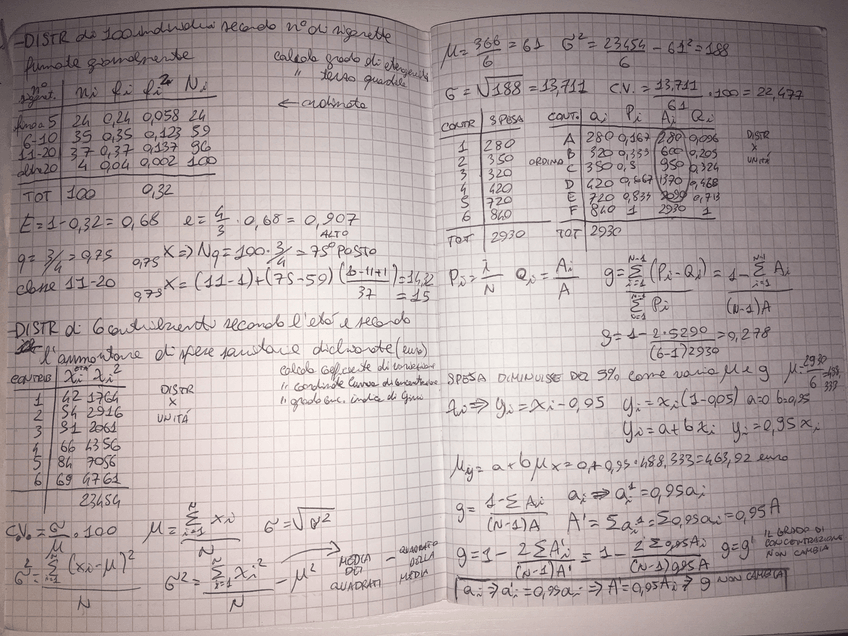 -DISTR di 100 individui secondo n° di sigarette
fumate giornalmente
calcola grado di eterogeneità
" terzo quartile
n° sigar. ni fi fi² Ni
← ordinata
fino a 5 24 0,24 0,058 24
6-10 35 0,35 0,123 59
11-20 37 0,37 0,137 96
oltre 20 4 0,04 0,002 100
TOT 100 0,32
E = 1-0,32 = 0,68 e = 4/3 · 0,68 = 0,907
ALTO
q = 3/4 = 0,75 0,75X => Nq = 100 · 3/4 = 75° POSTO
classe 11-20 0,75X = (11-1)+(75-59)
= 15
-DISTR di 6 contribuenti secondo l'età e secondo
l'ammontare di spese sanitarie dichiarate (euro)
calcola coefficiente di variazione
" coordinate curva di concentrazione
" grado conc. indice di Gini
CONTRIB xi xi²
1 42 1764
2 54 2916
3 51
4 66 4356
5 84 7056
6 69 4761
23454
DISTR
X
UNITÀ
C.V. = σ/μ · 100 μ = Σ xi / N σ = √σ²
σ² = Σ (xi-μ)² / N σ² = Σ xi² / N - μ²
MEDIA DEI QUADRATI - QUADRATO DELLA MEDIA
μ = 366/6 = 61 σ² = 23454/6 - 61² = 188
σ = √188 = 13,711 C.V. = 13,711/61 · 100 = 22,477
CONTR SPESA
1 280
2 350
3 320
4 420
5 720
6 840
TOT 2930
ORDINA
CONT. ai Pi Ai Qi
A 280 0,167 280 0,096
B 320 0,333 600 0,205
C 350 0,5 950 0,324
D 420 0,667 1370 0,468
E 720 0,833 2090 0,713
F 840 1 2930 1
TOT 2930
DISTR
X
UNITÀ
Pi = i/N Qi = Ai/A g = Σ (Pi-Qi) / Σ Pi = 1-
(N-1)A
g = 1 - 2·5290 / (6-1)2930 = 0,278
SPESA DIMINUISCE DEL 5% come varia μ e g μ = 2930/6 = 488,333
yi = xi · 0,95 yi = xi(1-0,05) a=0 b=0,95
yi = a+bxi yi = 0,95xi
μy = a+bμx = 0+0,95·488,333 = 463,92 euro
g = 1-ΣAi / (N-1)A ai => ai' = 0,95ai
A' = Σai' = Σ0,95ai = 0,95A
g = 1 - 2ΣAi' / (N-1)A' = 1 - 2Σ0,95Ai / (N-1)0,95A g = g'
IL GRADO DI
CONCENTRAZIONE
NON CAMBIA
ai => ai' = 0,95ai => A' = 0,95Ai => g NON CAMBIA